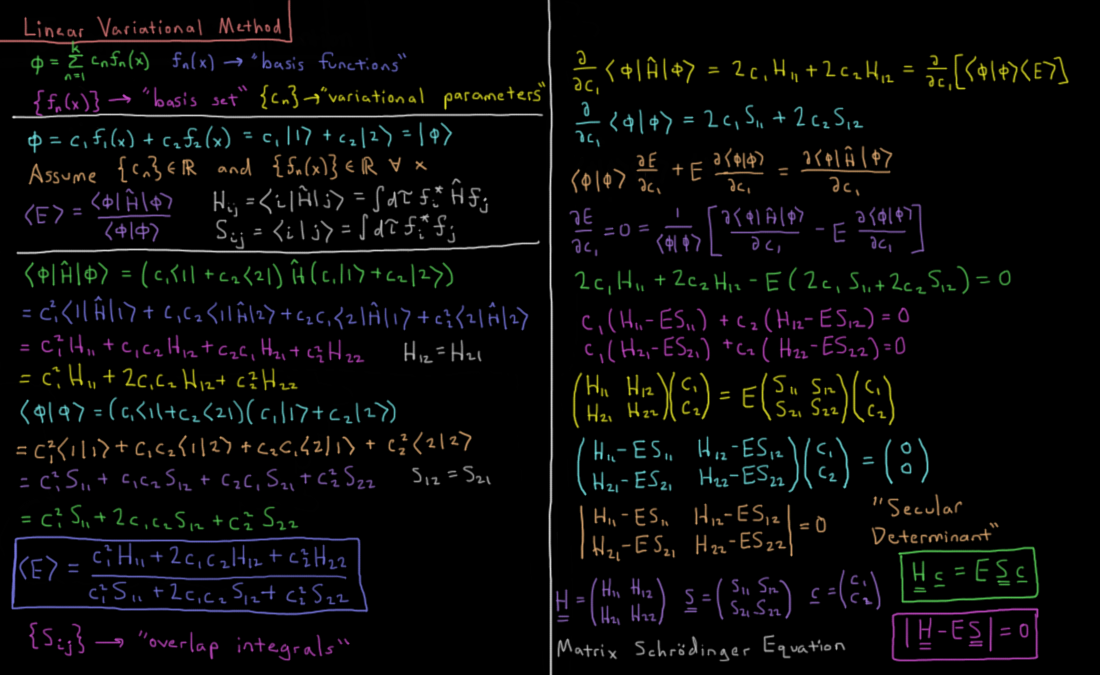 Linear Variational Method
ϕ = Σₙ₌₁ᵏ cₙfₙ(x)   fₙ(x) → "basis functions"
{fₙ(x)} → "basis set" {cₙ} → "variational parameters"
ϕ = c₁f₁(x) + c₂f₂(x) = c₁|1⟩ + c₂|2⟩ = |ϕ⟩
Assume {cₙ} ∈ ℝ and {fₙ(x)} ∈ ℝ ∀ x
⟨E⟩ = ⟨ϕ|Ĥ|ϕ⟩ / ⟨ϕ|ϕ⟩   Hᵢⱼ = ⟨i|Ĥ|j⟩ = ∫dτ fᵢ* Ĥ fⱼ
Sᵢⱼ = ⟨i|j⟩ = ∫dτ fᵢ* fⱼ
⟨ϕ|Ĥ|ϕ⟩ = (c₁⟨1| + c₂⟨2|) Ĥ (c₁|1⟩ + c₂|2⟩)
= c₁²⟨1|Ĥ|1⟩ + c₁c₂⟨1|Ĥ|2⟩ + c₂c₁⟨2|Ĥ|1⟩ + c₂²⟨2|Ĥ|2⟩
= c₁²H₁₁ + c₁c₂H₁₂ + c₂c₁H₂₁ + c₂²H₂₂   H₁₂ = H₂₁
= c₁²H₁₁ + 2c₁c₂H₁₂ + c₂²H₂₂
⟨ϕ|ϕ⟩ = (c₁⟨1| + c₂⟨2|)(c₁|1⟩ + c₂|2⟩)
= c₁²⟨1|1⟩ + c₁c₂⟨1|2⟩ + c₂c₁⟨2|1⟩ + c₂²⟨2|2⟩
= c₁²S₁₁ + c₁c₂S₁₂ + c₂c₁S₂₁ + c₂²S₂₂   S₁₂ = S₂₁
= c₁²S₁₁ + 2c₁c₂S₁₂ + c₂²S₂₂
⟨E⟩ = (c₁²H₁₁ + 2c₁c₂H₁₂ + c₂²H₂₂) / (c₁²S₁₁ + 2c₁c₂S₁₂ + c₂²S₂₂)
{Sᵢⱼ} → "overlap integrals"
∂/∂c₁ ⟨ϕ|Ĥ|ϕ⟩ = 2c₁H₁₁ + 2c₂H₁₂ = ∂/∂c₁ [⟨ϕ|ϕ⟩⟨E⟩]
∂/∂c₁ ⟨ϕ|ϕ⟩ = 2c₁S₁₁ + 2c₂S₁₂
⟨ϕ|ϕ⟩ ∂E/∂c₁ + E ∂⟨ϕ|ϕ⟩/∂c₁ = ∂⟨ϕ|Ĥ|ϕ⟩/∂c₁
∂E/∂c₁ = 0 = 1/⟨ϕ|ϕ⟩ [∂⟨ϕ|Ĥ|ϕ⟩/∂c₁ − E ∂⟨ϕ|ϕ⟩/∂c₁]
2c₁H₁₁ + 2c₂H₁₂ − E(2c₁S₁₁ + 2c₂S₁₂) = 0
c₁(H₁₁−ES₁₁) + c₂(H₁₂−ES₁₂) = 0
c₁(H₂₁−ES₂₁) + c₂(H₂₂−ES₂₂) = 0
(H₁₁ H₁₂; H₂₁ H₂₂)(c₁; c₂) = E(S₁₁ S₁₂; S₂₁ S₂₂)(c₁; c₂)
(H₁₁−ES₁₁ H₁₂−ES₁₂; H₂₁−ES₂₁ H₂₂−ES₂₂)(c₁; c₂) = (0; 0)
|H₁₁−ES₁₁ H₁₂−ES₁₂; H₂₁−ES₂₁ H₂₂−ES₂₂| = 0
"Secular
Determinant"
H̲̲ = (H₁₁ H₁₂; H₂₁ H₂₂) S̲̲ = (S₁₁ S₁₂; S₂₁ S₂₂) c̲ = (c₁; c₂)
H̲̲ c̲ = E S̲̲ c̲
Matrix Schrödinger Equation
|H̲̲ − E S̲̲| = 0